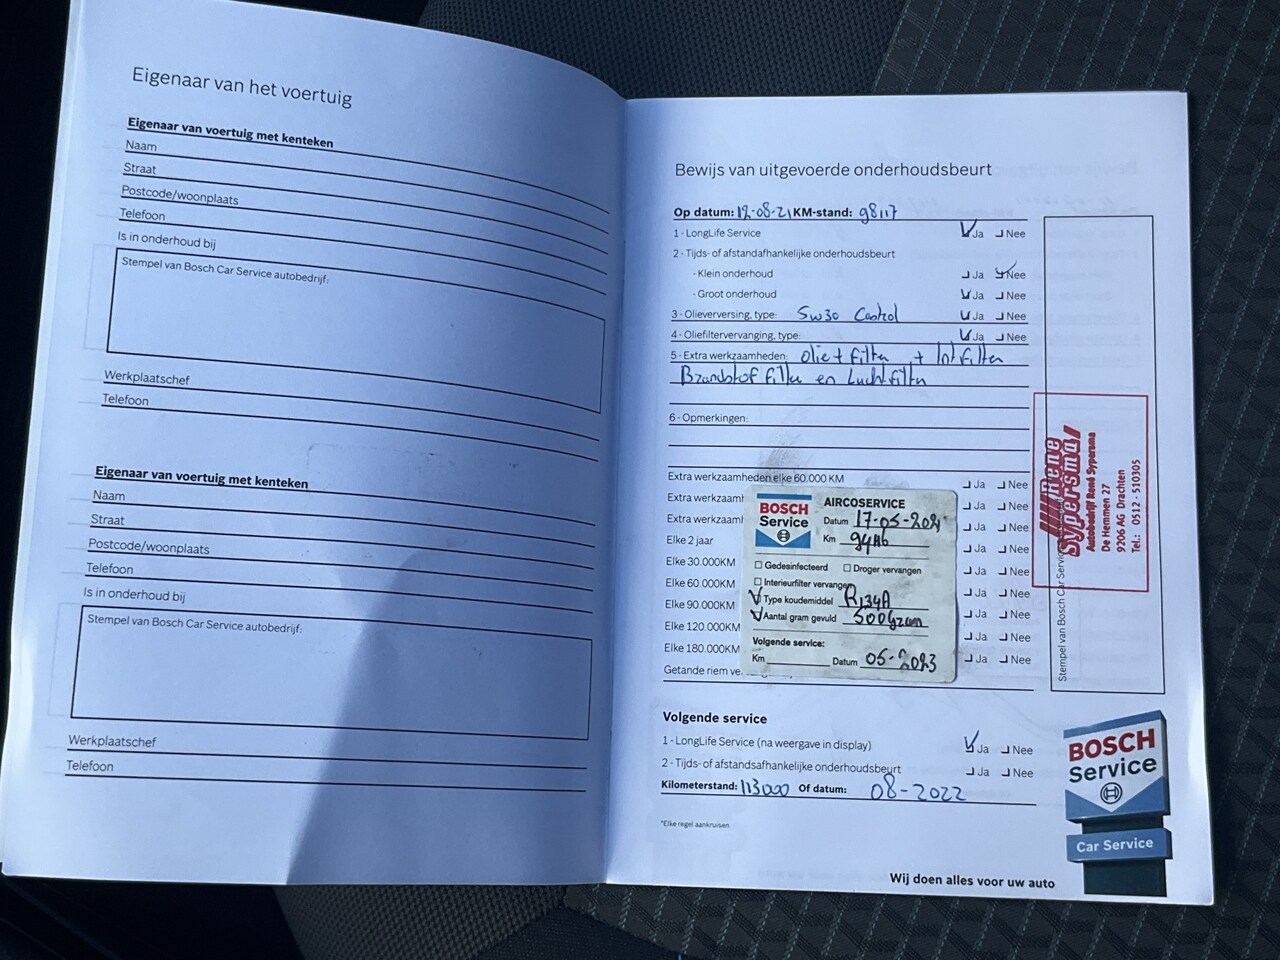 Eigenaar van het voertuig
Eigenaar van voertuig met kenteken
Naam
Straat
Postcode/woonplaats
Telefoon
Is in onderhoud bij
Stempel van Bosch Car Service autobedrijf:
Werkplaatschef
Telefoon
Eigenaar van voertuig met kenteken
Naam
Straat
Postcode/woonplaats
Telefoon
Is in onderhoud bij
Stempel van Bosch Car Service autobedrijf:
Werkplaatschef
Telefoon
Bewijs van uitgevoerde onderhoudsbeurt
Op datum: 12-08-21 KM-stand: 98117
1 - LongLife Service Ja Nee
2 - Tijds- of afstandafhankelijke onderhoudsbeurt
- Klein onderhoud Ja Nee
- Groot onderhoud Ja Nee
3 - Olieverversing, type: 5w30 Castrol Ja Nee
4 - Oliefiltervervanging, type: Ja Nee
5 - Extra werkzaamheden: Olie + filter + Int filter
Brandstof filter en Luchtfilter
6 - Opmerkingen:
Extra werkzaamheden elke 60.000 KM Ja Nee
Extra werkzaam Ja Nee
Extra werkzaam Ja Nee
Elke 2 jaar Ja Nee
Elke 30.000KM Ja Nee
Elke 60.000KM Ja Nee
Elke 90.000KM Ja Nee
Elke 120.000KM Ja Nee
Elke 180.000KM Ja Nee
Getande riem
BOSCH
Service
AIRCOSERVICE
Datum 17-05-2021
Km
Gedesinfecteerd Droger vervangen
Interieurfilter vervangen
Type koudemiddel R134A
Aantal gram gevuld 500Gram
Volgende service:
Km Datum 05-2023
Volgende service
1 - LongLife Service (na weergave in display) Ja Nee
2 - Tijds- of afstandsafhankelijke onderhoudsbeurt Ja Nee
Kilometerstand: 113000 Of datum: 08-2022
*Elke regel aankruisen
Stempel van Bosch Car Servic
Rene
Sypersma
Autobedrijf René Sypersma
De Hemmen 27
9206 AG Drachten
Tel.: 0512 - 510305
BOSCH
Service
Car Service
Wij doen alles voor uw auto